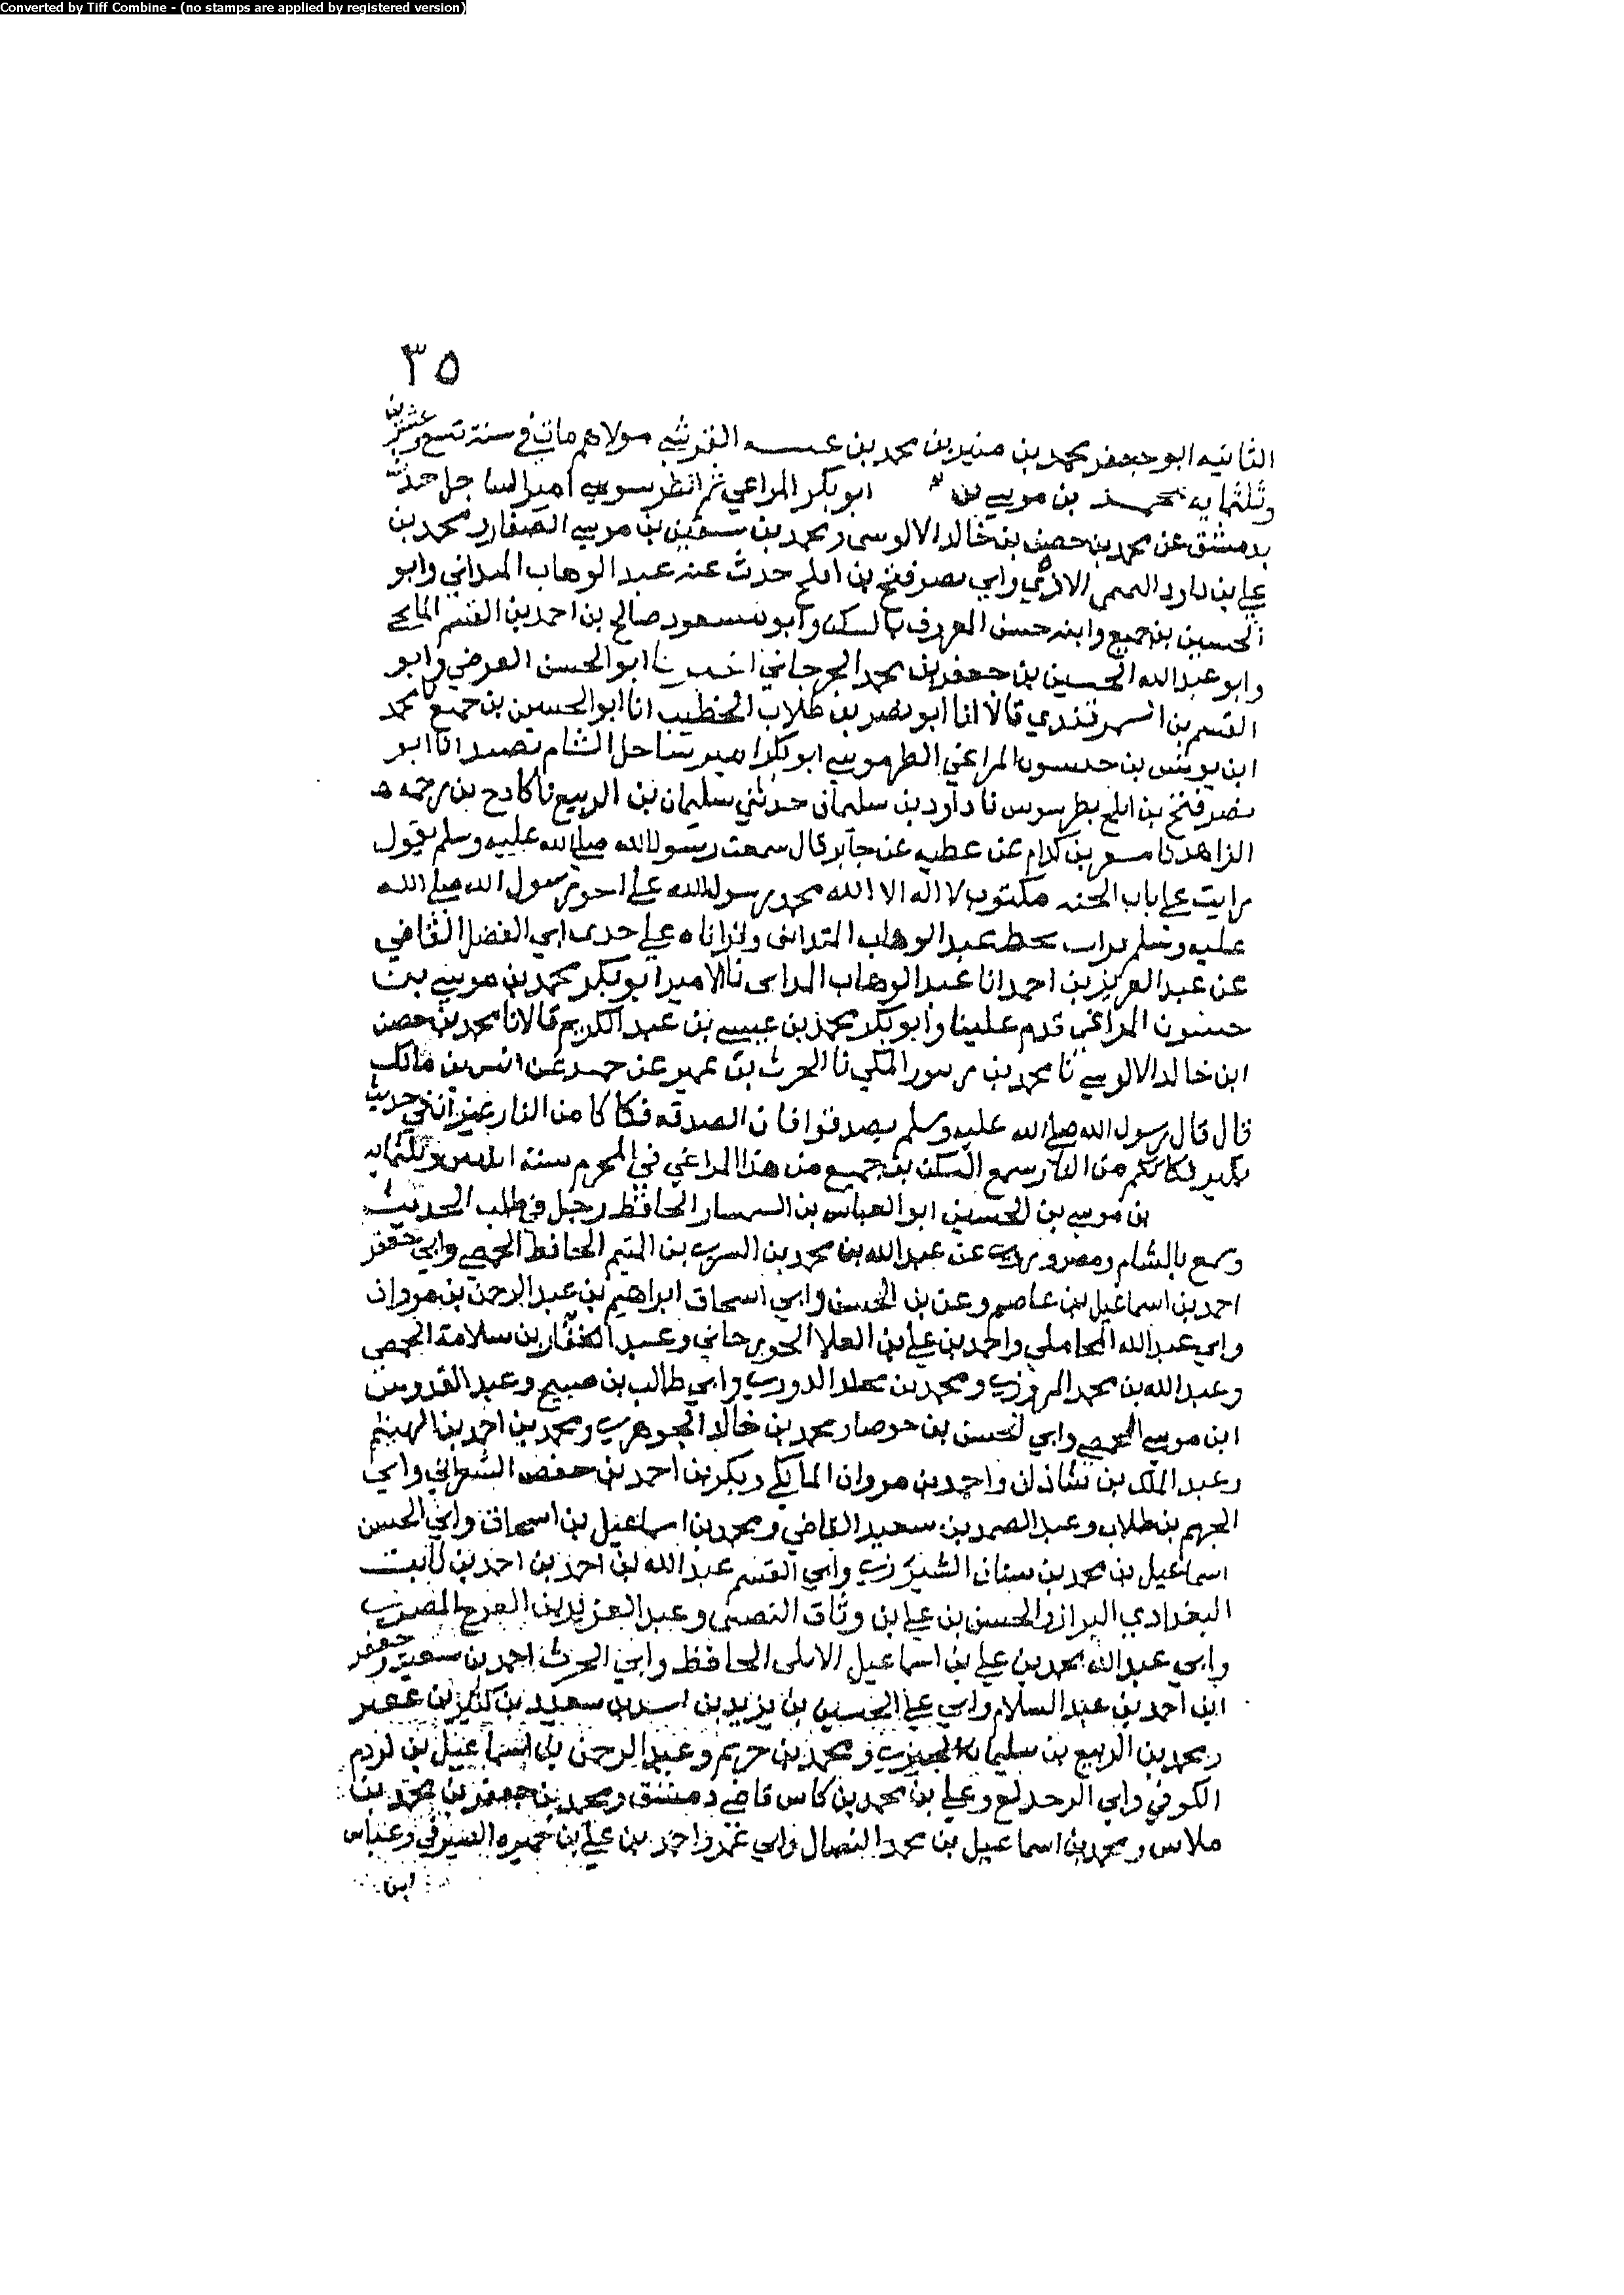 Converted by Tiff Combine - (no stamps are applied by registered version)
٣٥
الثانيه ابو جعفر محمد بن منير بن محمد بن عنبسه القرشي مولاهم مات في سنة تسع وعشرين
وثلثمايه محمد بن موسى بن ابو بكر المراعي ثم الطرسوسي امير الساحل حدث
بدمشق عن محمد بن حصن بن خالد الالوسي ومحمد بن سفين بن موسى الصفار ومحمد بن
علي بن داود الاذني وابي نصر فتح بن افلح حدث عنه عبد الوهاب الميداني وابو
الحسين بن جميع وابنه حسن المعروف بالسكن وابو مسعود صالح بن احمد بن القسم
وابو عبد الله الحسين بن جعفر بن محمد الجرجاني اخبرنا ابو الحسن الفرضي وابو
القسم بن السمرقندي قالا انا ابو نصر بن طلاب الخطيب انا ابو الحسين بن جميع نا محمد
ابن يونس بن حسون المراغي الطرسوسي ابو بكر امير ساحل الشام بصيدا نا ابو
نصر فتح بن افلح بطرسوس نا داود بن سليمان حدثني سليمان بن الربيع نا كادح بن رحمه
الزاهد نا مسعر بن كدام عن عطيه عن جابر قال سمعت رسول الله صلى الله عليه وسلم يقول
رايت على باب الجنه مكتوب لا اله الا الله محمد رسول الله علي اخو رسول الله صلى الله
عليه وسلم قرات بخط عبد الوهاب الميداني وقراناه على جدي ابي الفضل القاضي
عن عبد العزيز بن احمد انا عبد الوهاب الميداني نا الامير ابو بكر محمد بن موسى بن
حسنون المراغي قدم علينا وابو بكر محمد بن عيسى بن عبد الكريم قالا نا محمد بن حصن
ابن خالد الالوسي نا محمد بن زنبور المكي نا الحرث بن عمير عن حميد عن انس بن مالك
قال قال رسول الله صلى الله عليه وسلم تصدقوا فان الصدقه فكاكا من النار غير ان في حديث
بكير فكاككم من النار سمع السكن بن جميع من هذا المراغي في المحرم سنة وثلثمايه
بن موسى بن الحسين ابو العباس بن السمسار الحافظ رحل في طلب الحديث
وسمع بالشام ومصر وروى عن عبد الله بن محمد بن السري بن الحافظ الحمصي وابي جعفر
احمد بن اسماعيل بن عاصم وعن بن الحسن وابي اسحاق ابراهيم بن عبد الرحمن بن مروان
وابي عبد الله المحاملي واحمد بن علي بن العلا الجوزجاني وعبد الغفار بن سلامة الحمصي
وعبد الله بن محمد المروزي ومحمد بن مخلد الدوري وابي طالب بن صبيح وعبد القدوس
ابن موسى الحمصي وابي الحسن بن جوصا ومحمد بن خالد الجوهري ومحمد بن احمد بن الهيثم
وعبد الملك بن شاذان واحمد بن مروان المالكي وبكر بن احمد بن حفص الشعراني وابي
الجهم بن طلاب وعبد الصمد بن سعيد القاضي ومحمد بن اسماعيل بن اسحاق وابي الحسن
اسماعيل بن محمد بن سنان الشيزري وابي القسم عبد الله بن احمد بن احمد بن ثابت
البغدادي البزاز والحسن بن علي بن وثاق النصيبي وعبد العزيز بن الفرج المصري
وابي عبد الله محمد بن علي بن اسماعيل الايلي الحافظ وابي الحرث احمد بن سعيد وجعفر
ابن احمد بن عبد السلام وابي علي الحسين بن يزيد بن اسد بن سعيد بن كثير بن عفير
ومحمد بن الربيع بن سليمان الجيزي ومحمد بن خريم وعبد الرحمن بن اسماعيل بن كردم
الكوفي وابي الدحداح وعلي بن محمد بن كاس قاضي دمشق ومحمد بن جعفر بن محمد بن
ملاس ومحمد بن اسماعيل بن محمد البصال وابي عمرو احمد بن علي بن حميره الصيرفي وعباس
ابن